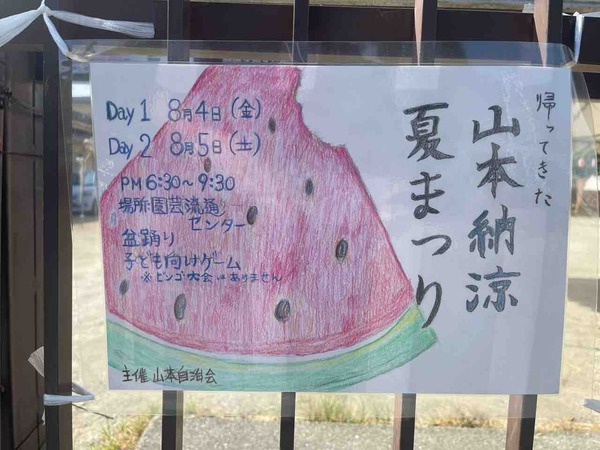 帰ってきた
山本納涼
夏まつり
Day 1 8月4日(金)
Day 2 8月5日(土)
PM 6:30~9:30
場所園芸流通
センター
盆踊り
子ども向けゲーム
※ビンゴ大会はありません
主催 山本自治会